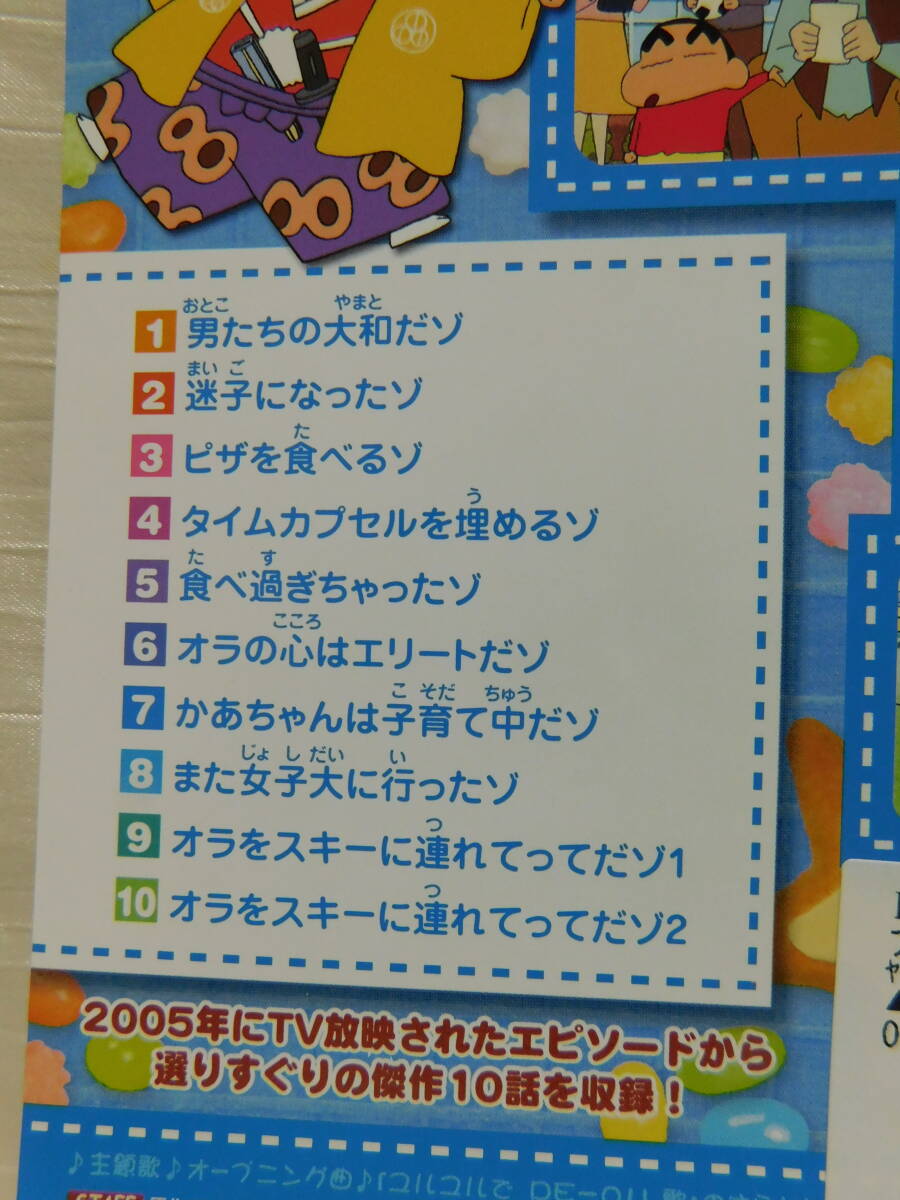 1 男たちの大和だゾ
2 迷子になったゾ
3 ピザを食べるゾ
4 タイムカプセルを埋めるゾ
5 食べ過ぎちゃったゾ
6 オラの心はエリートだゾ
7 かあちゃんは子育て中だゾ
8 また女子大に行ったゾ
9 オラをスキーに連れてってだゾ1
10 オラをスキーに連れてってだゾ2
2005年にTV放映されたエピソードから
選りすぐりの傑作10話を収録！
♪主題歌♪オープニング曲♪「ユルユルで DE-O!!